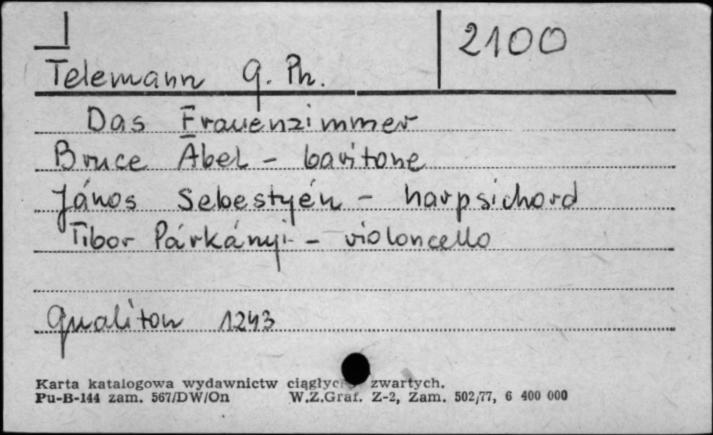 2100
Telemann G. Ph.
Das Frauenzimmer
Bruce Abel - baritone
János Sebestyén - harpsichord
Tibor Párkányi - violoncello
Qualiton 1243
Karta katalogowa wydawnictw zwartych.
Pu-B-144 zam. 567/DW/On W.Z.Graf. Z-2, Zam. 502/77, 6 400 000